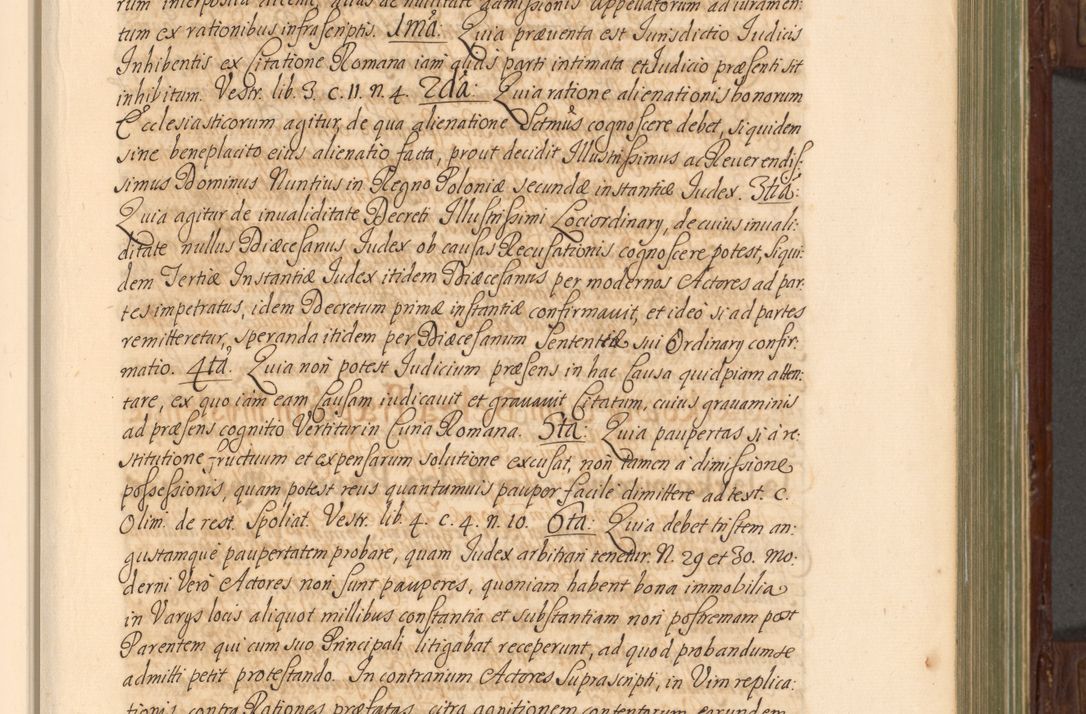 rum interposita dicend, quus de nullitate admissionis Appellatorum ad iuramen:
tum ex rationibus infrascriptis. 1mã: Quia præuenta est Iurisdictio Iudicis
Inhibentis ex Citatione Romana iam quas parti intimata et Iudicio præsenti sit
inhibitum. Vestr. lib. 3. c. 11. n. 4. 2dã: Quia ratione alienationis bonorum
Ecclesiasticorum agitur, de qua alienatione Sctmus cognoscere debet, siquidem
sine beneplacito eius alienatio facta, prout decidit Illustrissimus ac Reuerendis:
simus Dominus Nuntius in Regno Poloniæ secundæ instantiæ Iudex. 3tiã:
Quia agitur de inualiditate Decreti Illustrissimi Lociordinary, de cuius inuali:
ditate nullus Diæcesanus Iudex ob causas Recusationis cognoscere potest, siqui:
dem Tertiæ Instantiæ Iudex itidem Diæcesanus per modernos Actores ad par:
tes impetratus, idem Decretum primæ instantiæ confirmauit, et ideò si ad partes
remitteretur, speranda itidem per Diæcesanum Sententiæ sui Ordinary confir:
matio. 4tã. Quia non potest Iudicium præsens in hac Causa quidpiam atten:
tare, ex quo iam eam Causam iudicauit et grauauit Citatum, cuius grauaminis
ad præsens cognitio Vertitur in Curia Romana. 5tã: Quia paupertas si à re:
stitutione fructuum et expensarum solutione excusat, non tamen à dimissione
possessionis, quam potest reus quantumuis pauper facile dimittere ad test. c.
Olim. de rest. Spoliat. Vestr. lib. 4. c. 4. n. 10. 6tã: Quia debet tristem an:
gustamque paupertatem probare, quam Iudex arbitrari tenetur. N. 29 et 30. Mo:
derni Verò Actores non sunt pauperes, quoniam habent bona immobilia
in Varys locis aliquot millibus constantia et substantiam non postremam post
Parentem qui cum suo Principali litigabat receperunt, ad quod probandum se
admitti petit protestando. In contrarium Actores suprascripti, in Vim replica:
tionis contra Rationes præfatas, citra agnitionem contentorum earundem